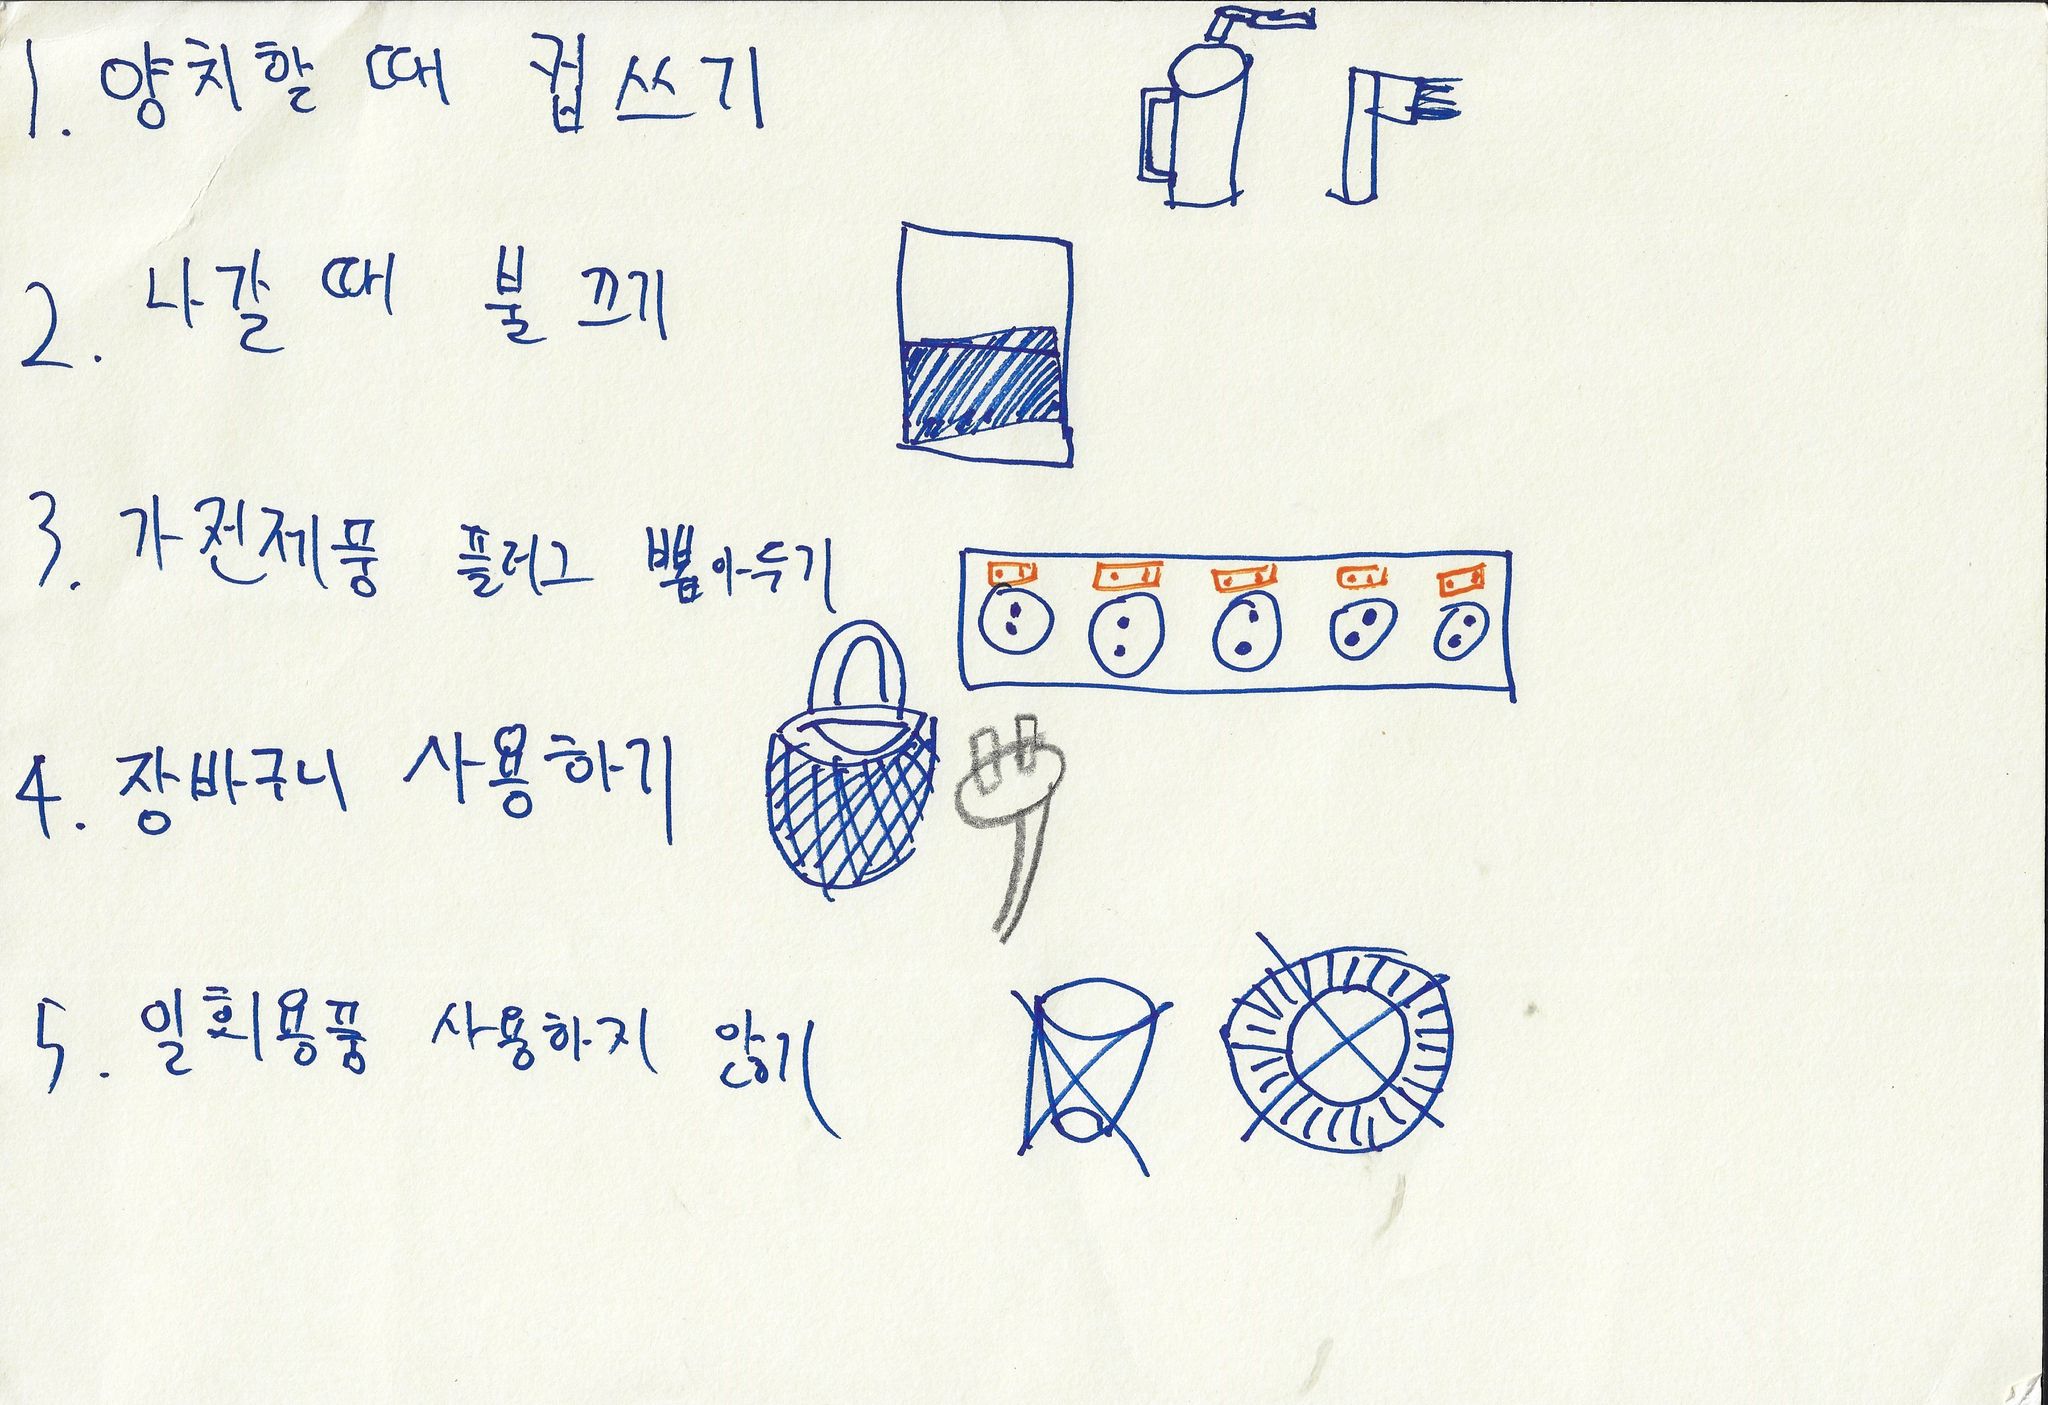 1. 양치할 때 컵쓰기
2. 나갈 때 불 끄기
3. 가전제품 플러그 뽑아두기
4. 장바구니 사용하기
5. 일회용품 사용하지 않기